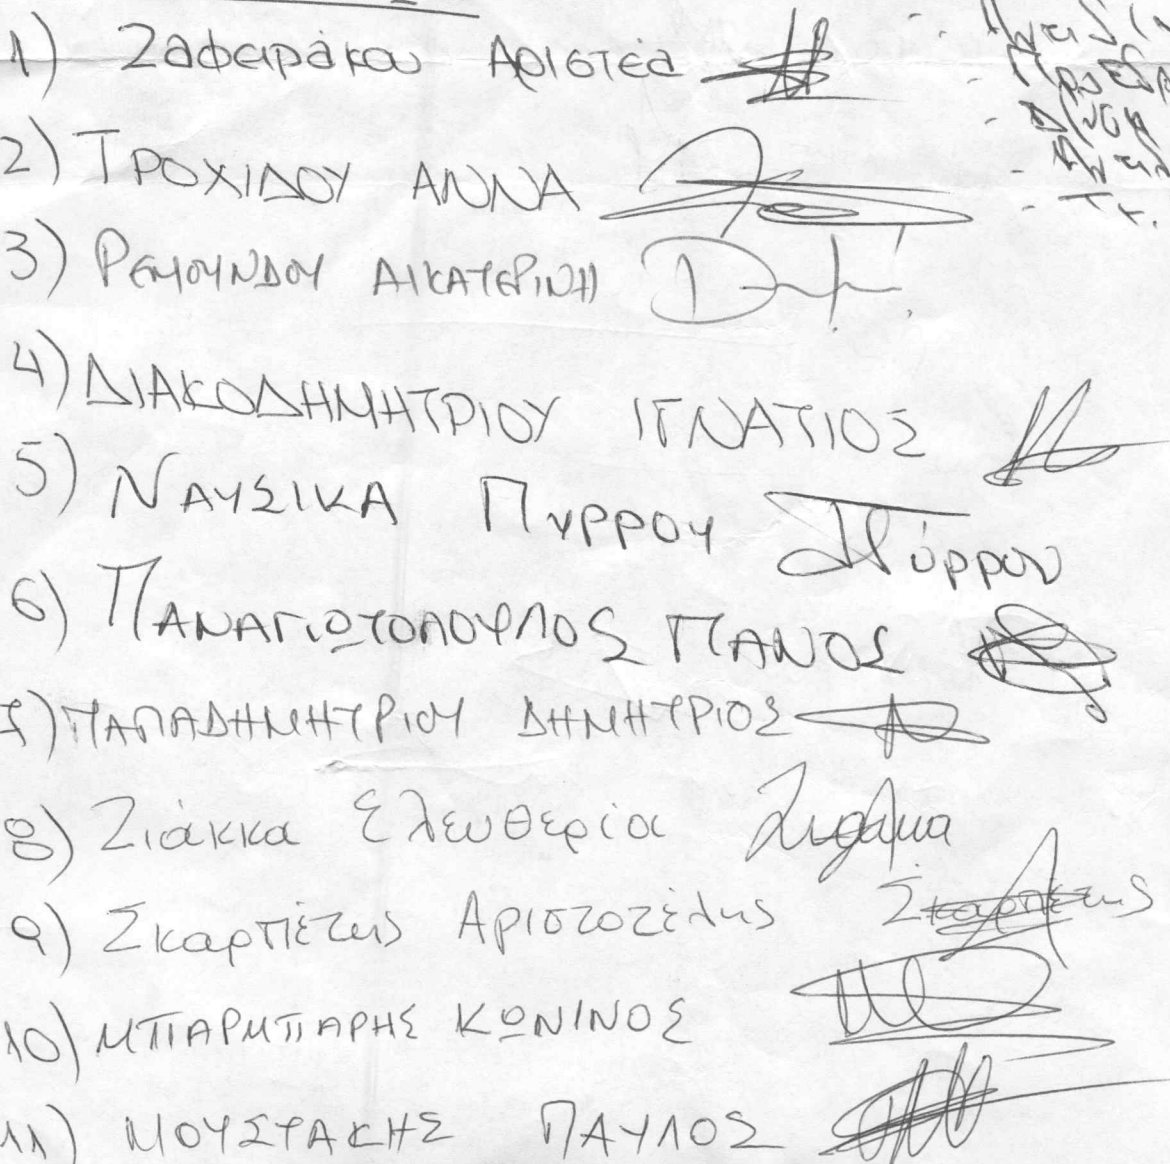 1) Ζαφειράκου Αριστέα
2) ΤΡΟΧΙΔΟΥ ΑΝΝΑ
3) ΡΕΜΟΥΝΔΟΥ ΑΙΚΑΤΕΡΙΝΗ
4) ΔΙΑΚΟΔΗΜΗΤΡΙΟΥ ΙΓΝΑΤΙΟΣ
5) ΝΑΥΣΙΚΑ ΠΥΡΡΟΥ Πύρρου
6) ΠΑΝΑΓΙΩΤΟΠΟΥΛΟΣ ΠΑΝΟΣ
7) ΠΑΠΑΔΗΜΗΤΡΙΟΥ ΔΗΜΗΤΡΙΟΣ
8) Ζιάκκα Ελευθερία
9) Σκαρπέτης Αριστοτέλης Σκαρπέτης
10) ΜΠΑΡΜΠΑΡΗΣ ΚΩΝ/ΝΟΣ
11) ΜΟΥΣΤΑΚΗΣ ΠΑΥΛΟΣ